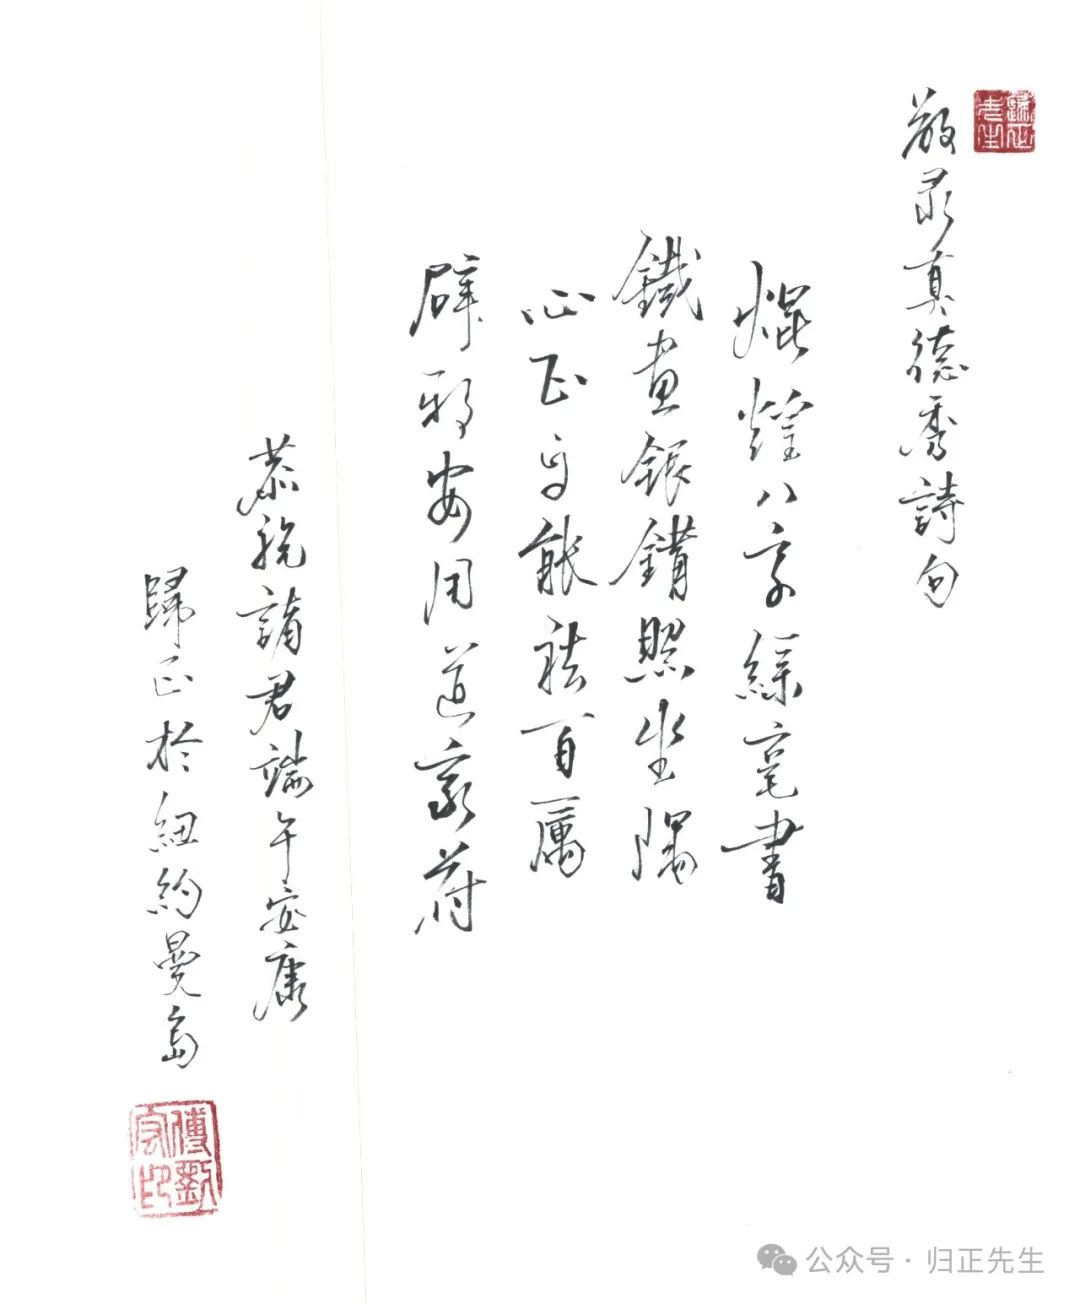 歸正先生
敬录真德秀詩句
焜煌八字綵毫書
鐵畫銀鉤照坐隅
心正自能祛百厲
辟邪安用道家符
恭祝諸君端午安康
歸正於紐約曼島
公众号·归正先生